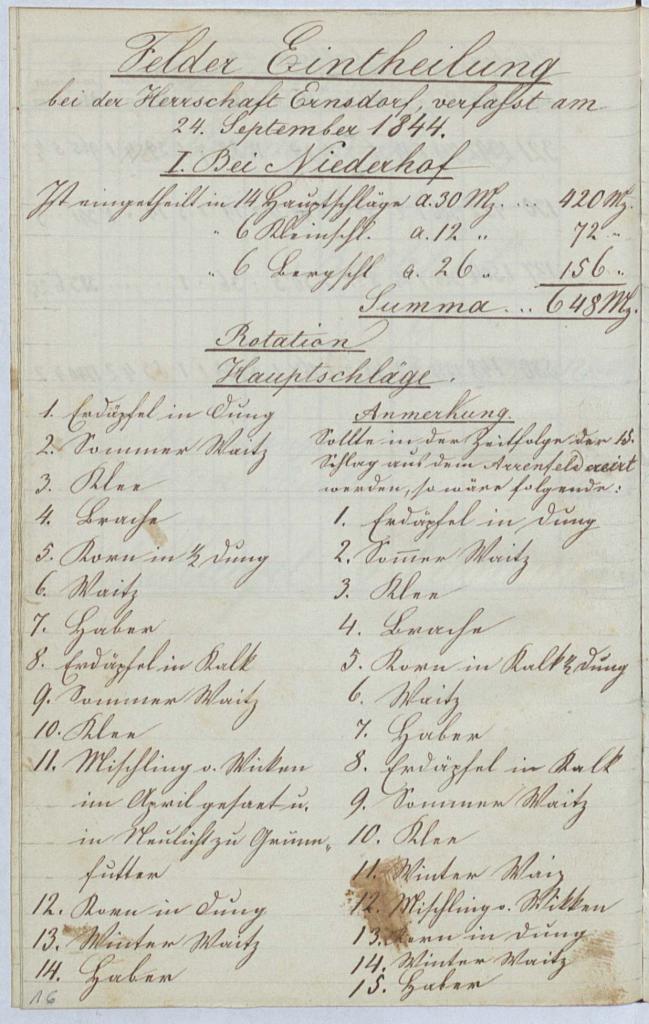 Felder Eintheilung
bei der Herrschaft Ernsdorf, verfasst am
24. September 1844.
I. Bei Niederhof
Ist eingetheilt in 14 Hauptschläge a. 30 Mz. ... 420 Mz.
" 6 Kleinschl. a. 12 " 72 "
" 6 Bergschl a. 26 " 156 "
Summa ... 648 Mz.
Rotation
Hauptschläge.
1. Erdäpfel in Dung
2. Sommer Waitz
3. Klee
4. Brache
5. Korn in ½ Dung
6. Waitz
7. Haber
8. Erdäpfel in Kalk
9. Sommer Waitz
10. Klee
11. Mischling o. Wicken
im April gesaet u.
in Neulicht zu Grünn„
futter
12. Korn in Dung
13. Winter Waitz
14. Haber
Anmerkung.
Sollte in der Zeitfolge der 15.
Schlag aus dem Arrenfeld
werden, so wäre folgende:
1. Erdäpfel in Dung
2. Som̅er Waitz
3. Klee
4. Brache
5. Korn in Kalk ½ Dung
6. Waitz
7. Haber
8. Erdäpfel in Kalk
9. Sommer Waitz
10. Klee
11. Winter Waiz
12. Mischling o. Wikken
13. Korn in Dung
14. Winter Waitz
15. Haber
16